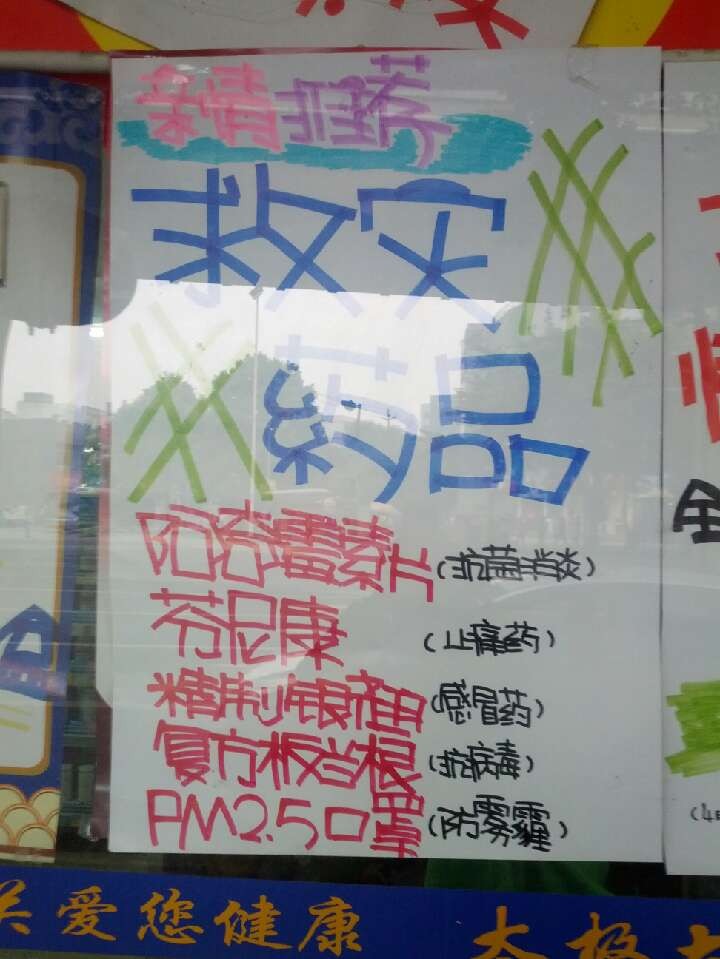 亲情推荐
救灾
药品
阿奇霉素片(抗菌消炎)
芬尼康(止痛药)
精制银翘(感冒药)
复方板兰根(抗病毒)
PM2.5口罩(防雾霾)
关爱您健康
太极